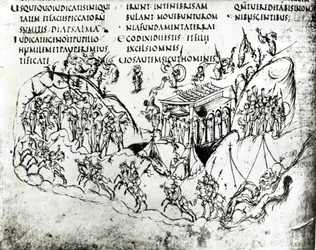 USQUEQUOIUDICATISINIQUI
TATEM ETFACIESPECCATORU
SUMITIS DIAPSALMA
IUDICATEEGENOETPUPILLO
HUMILEMETPAUPEREMIUS
TIFICATE
ERUNT INTENEBRISAM
BULANT MOUEBUNTUROM
NIAFUNDAMENTATERRAE
EGODIXIDIIESTIS ETFILII
EXCELSIOMNES
UOSAUTEMSICUTHOMINES
HEREDITABISINOM
NIBUSGENTIBUS